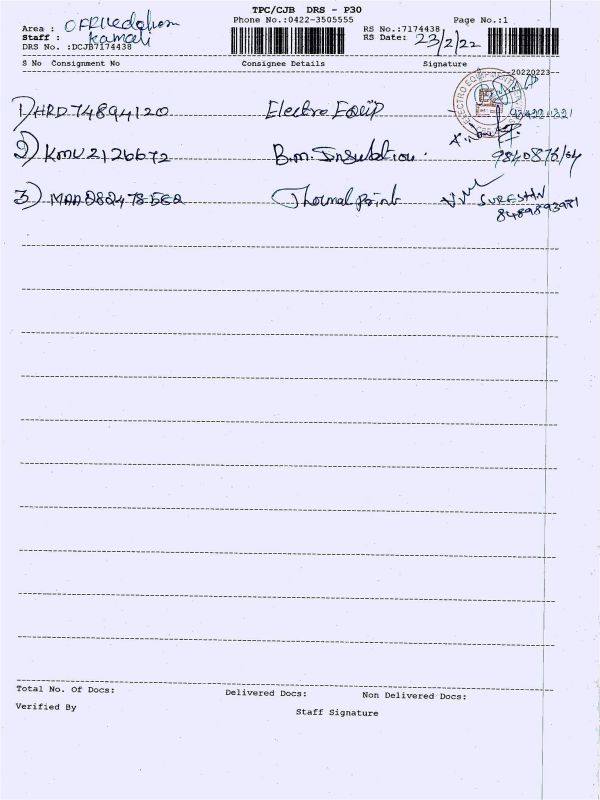 TPC/CJB DRS - P30
Phone No.:0422-3505555 Page No.:1
Area : 
Staff : Kamali
RS No.:7174438
RS Date: 23/2/22
DRS No. :DCJB7174438
S No Consignment No Consignee Details Signature
20220223
1) HRD74894120 Electro Equip
2) KMU2126672 B.m. Insulation. 
3) Thermal point SURESH
Total No. Of Docs: Delivered Docs: Non Delivered Docs:
Verified By Staff Signature